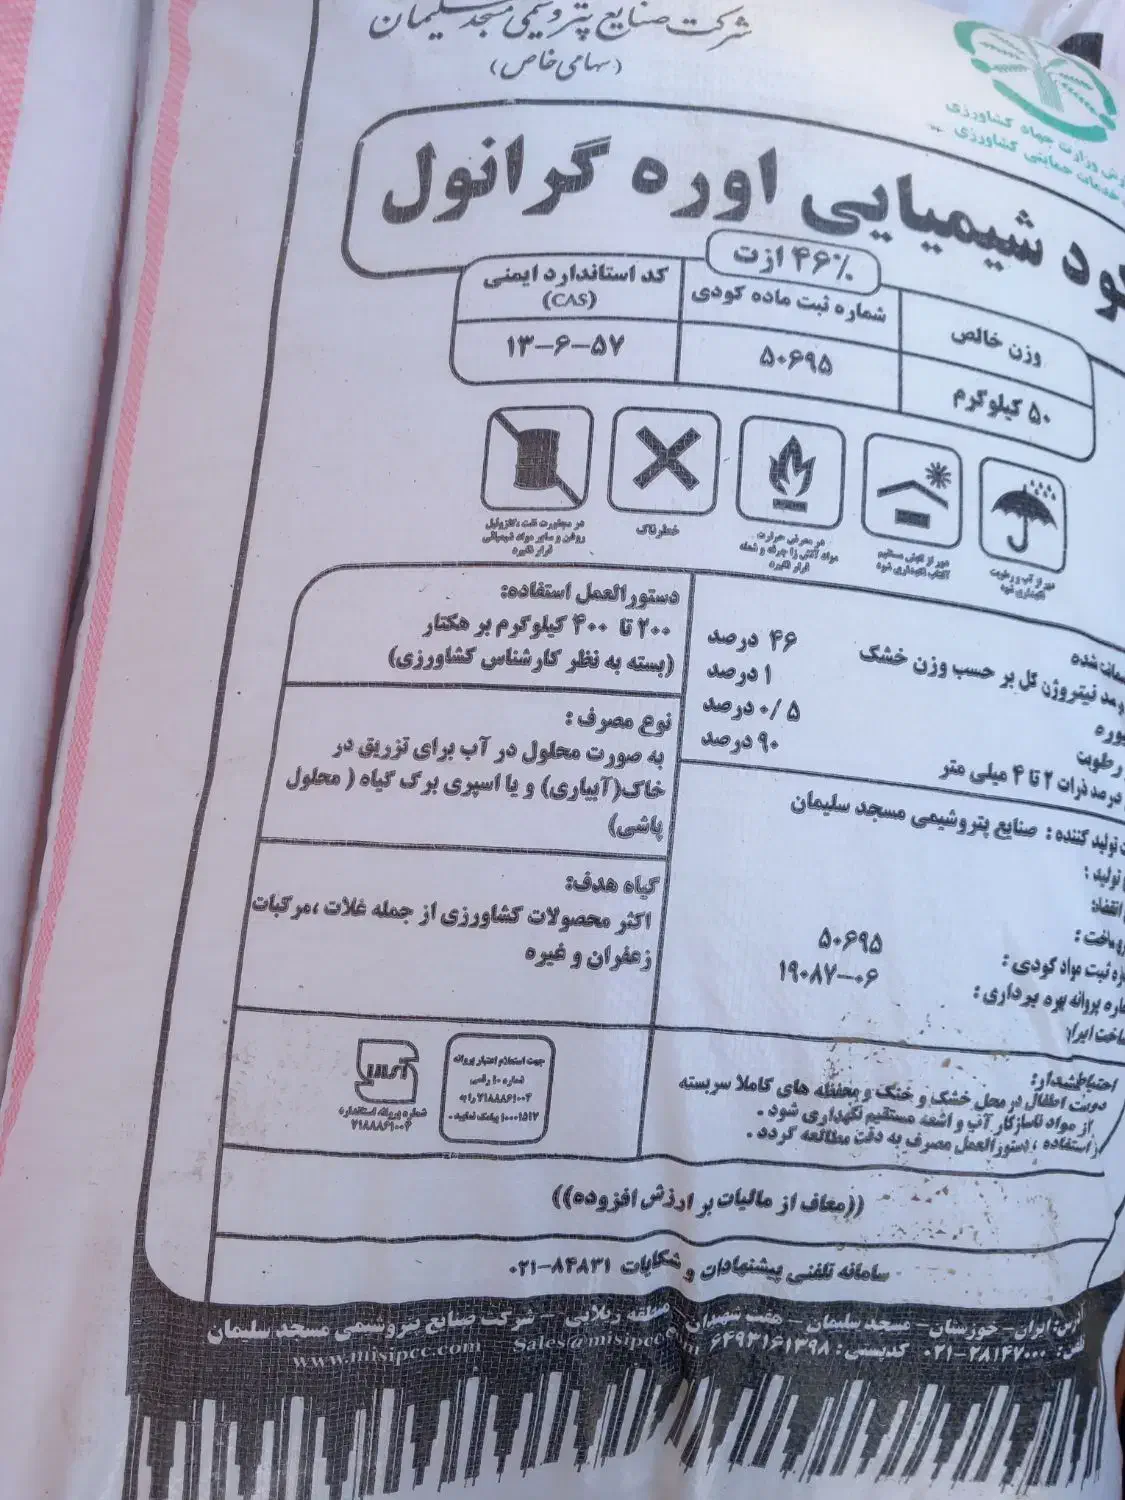 شرکت صنایع پتروشیمی مسجد سلیمان
(سهامی خاص)
وزارت جهاد کشاورزی
خدمات حمایتی کشاورزی
کود شیمیایی اوره گرانول
۴۶٪ ازت
وزن خالص
شماره ثبت ماده کودی
کد استاندارد ایمنی
(CAS)
۵۰ کیلوگرم
۵۰۶۹۵
۱۳-۶-۵۷
دور از آب و رطوبت
نگهداری شود
دور از تابش مستقیم
آفتاب نگهداری شود
در معرض حرارت
مواد آتش زا جرقه و شعله
قرار نگیرد
خطرناک
در مجاورت نفت ،گازوئیل
روغن و سایر مواد شیمیائی
قرار نگیرد
نیتروژن کل بر حسب وزن خشک ۴۶ درصد
۱ درصد
رطوبت ۰/۵ درصد
درصد ذرات ۲ تا ۴ میلی متر ۹۰ درصد
دستورالعمل استفاده:
۲۰۰ تا ۴۰۰ کیلوگرم بر هکتار
(بسته به نظر کارشناس کشاورزی)
نوع مصرف :
به صورت محلول در آب برای تزریق در
خاک(آبیاری) و یا اسپری برگ گیاه ( محلول
پاشی)
گیاه هدف:
اکثر محصولات کشاورزی از جمله غلات ،مرکبات
زعفران و غیره
تولید کننده : صنایع پتروشیمی مسجد سلیمان
تولید :
انقضاء:
ساخت :
ثبت مواد کودی : ۵۰۶۹۵
پروانه بهره برداری : ۱۹۰۸۷-۰۶
ساخت ایران
احتیاط هشدار:
دوست اطفال در محل خشک و خنک و محفظه های کاملا سربسته
از مواد ناسازگار آب و اشعه مستقیم نگهداری شود .
استفاده ، دستورالعمل مصرف به دقت مطالعه گردد .
جهت استعلام اعتبار پروانه
شماره ۱۰ رقمی
۲۱۸۸۸۶۱۰۰۴ را به
۱۰۰۰۱۵۱۷ پیامک نمایید .
شماره پروانه استاندارد
۲۱۸۸۸۶۱۰۰۴
((معاف از مالیات بر ارزش افزوده))
سامانه تلفنی پیشنهادات و شکایات ۸۴۸۳۱-۰۲۱
آدرس: ایران - خوزستان - مسجد سلیمان - هفت شهیدان - منطقه زیلائی - شرکت صنایع پتروشیمی مسجد سلیمان
تلفن: ۲۸۱۴۷۰۰۰-۰۲۱ کدپستی: ۶۴۹۳۱۶۱۳۹۸ Sales@misipcc.com www.misipcc.com